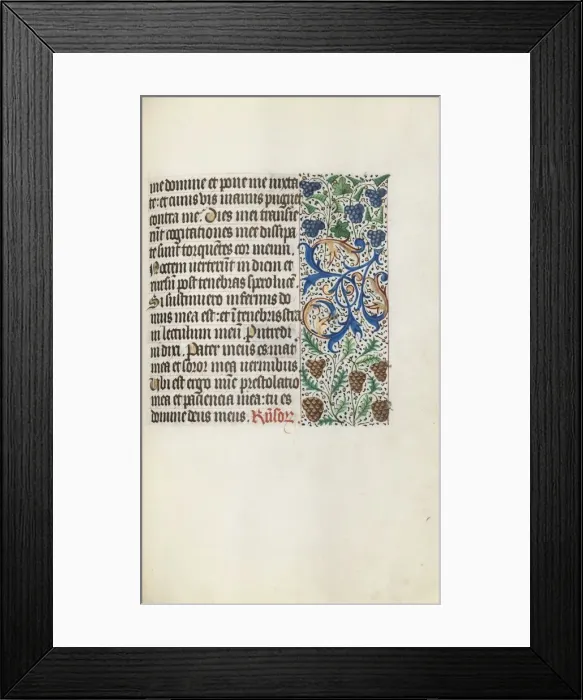 me domine et pone me iuxta
te: et cuius vis manus pugnet
contra me. Dies mei transie
rūt cogitationes mee dissipa
te sunt torquētes cor meum
Noctem verterūt in diem et
rursū post tenebras spero lucē.
Si sustinuero infernus do
mus mea est: et ī tenebris stra
ui lectulum meū. Putredi
ni dixi. Pater meus es mat
mea et soror mea uermibus
Ubi est ergo nūc prestolatio
mea et paciencia mea: tu es
domine deus meus.